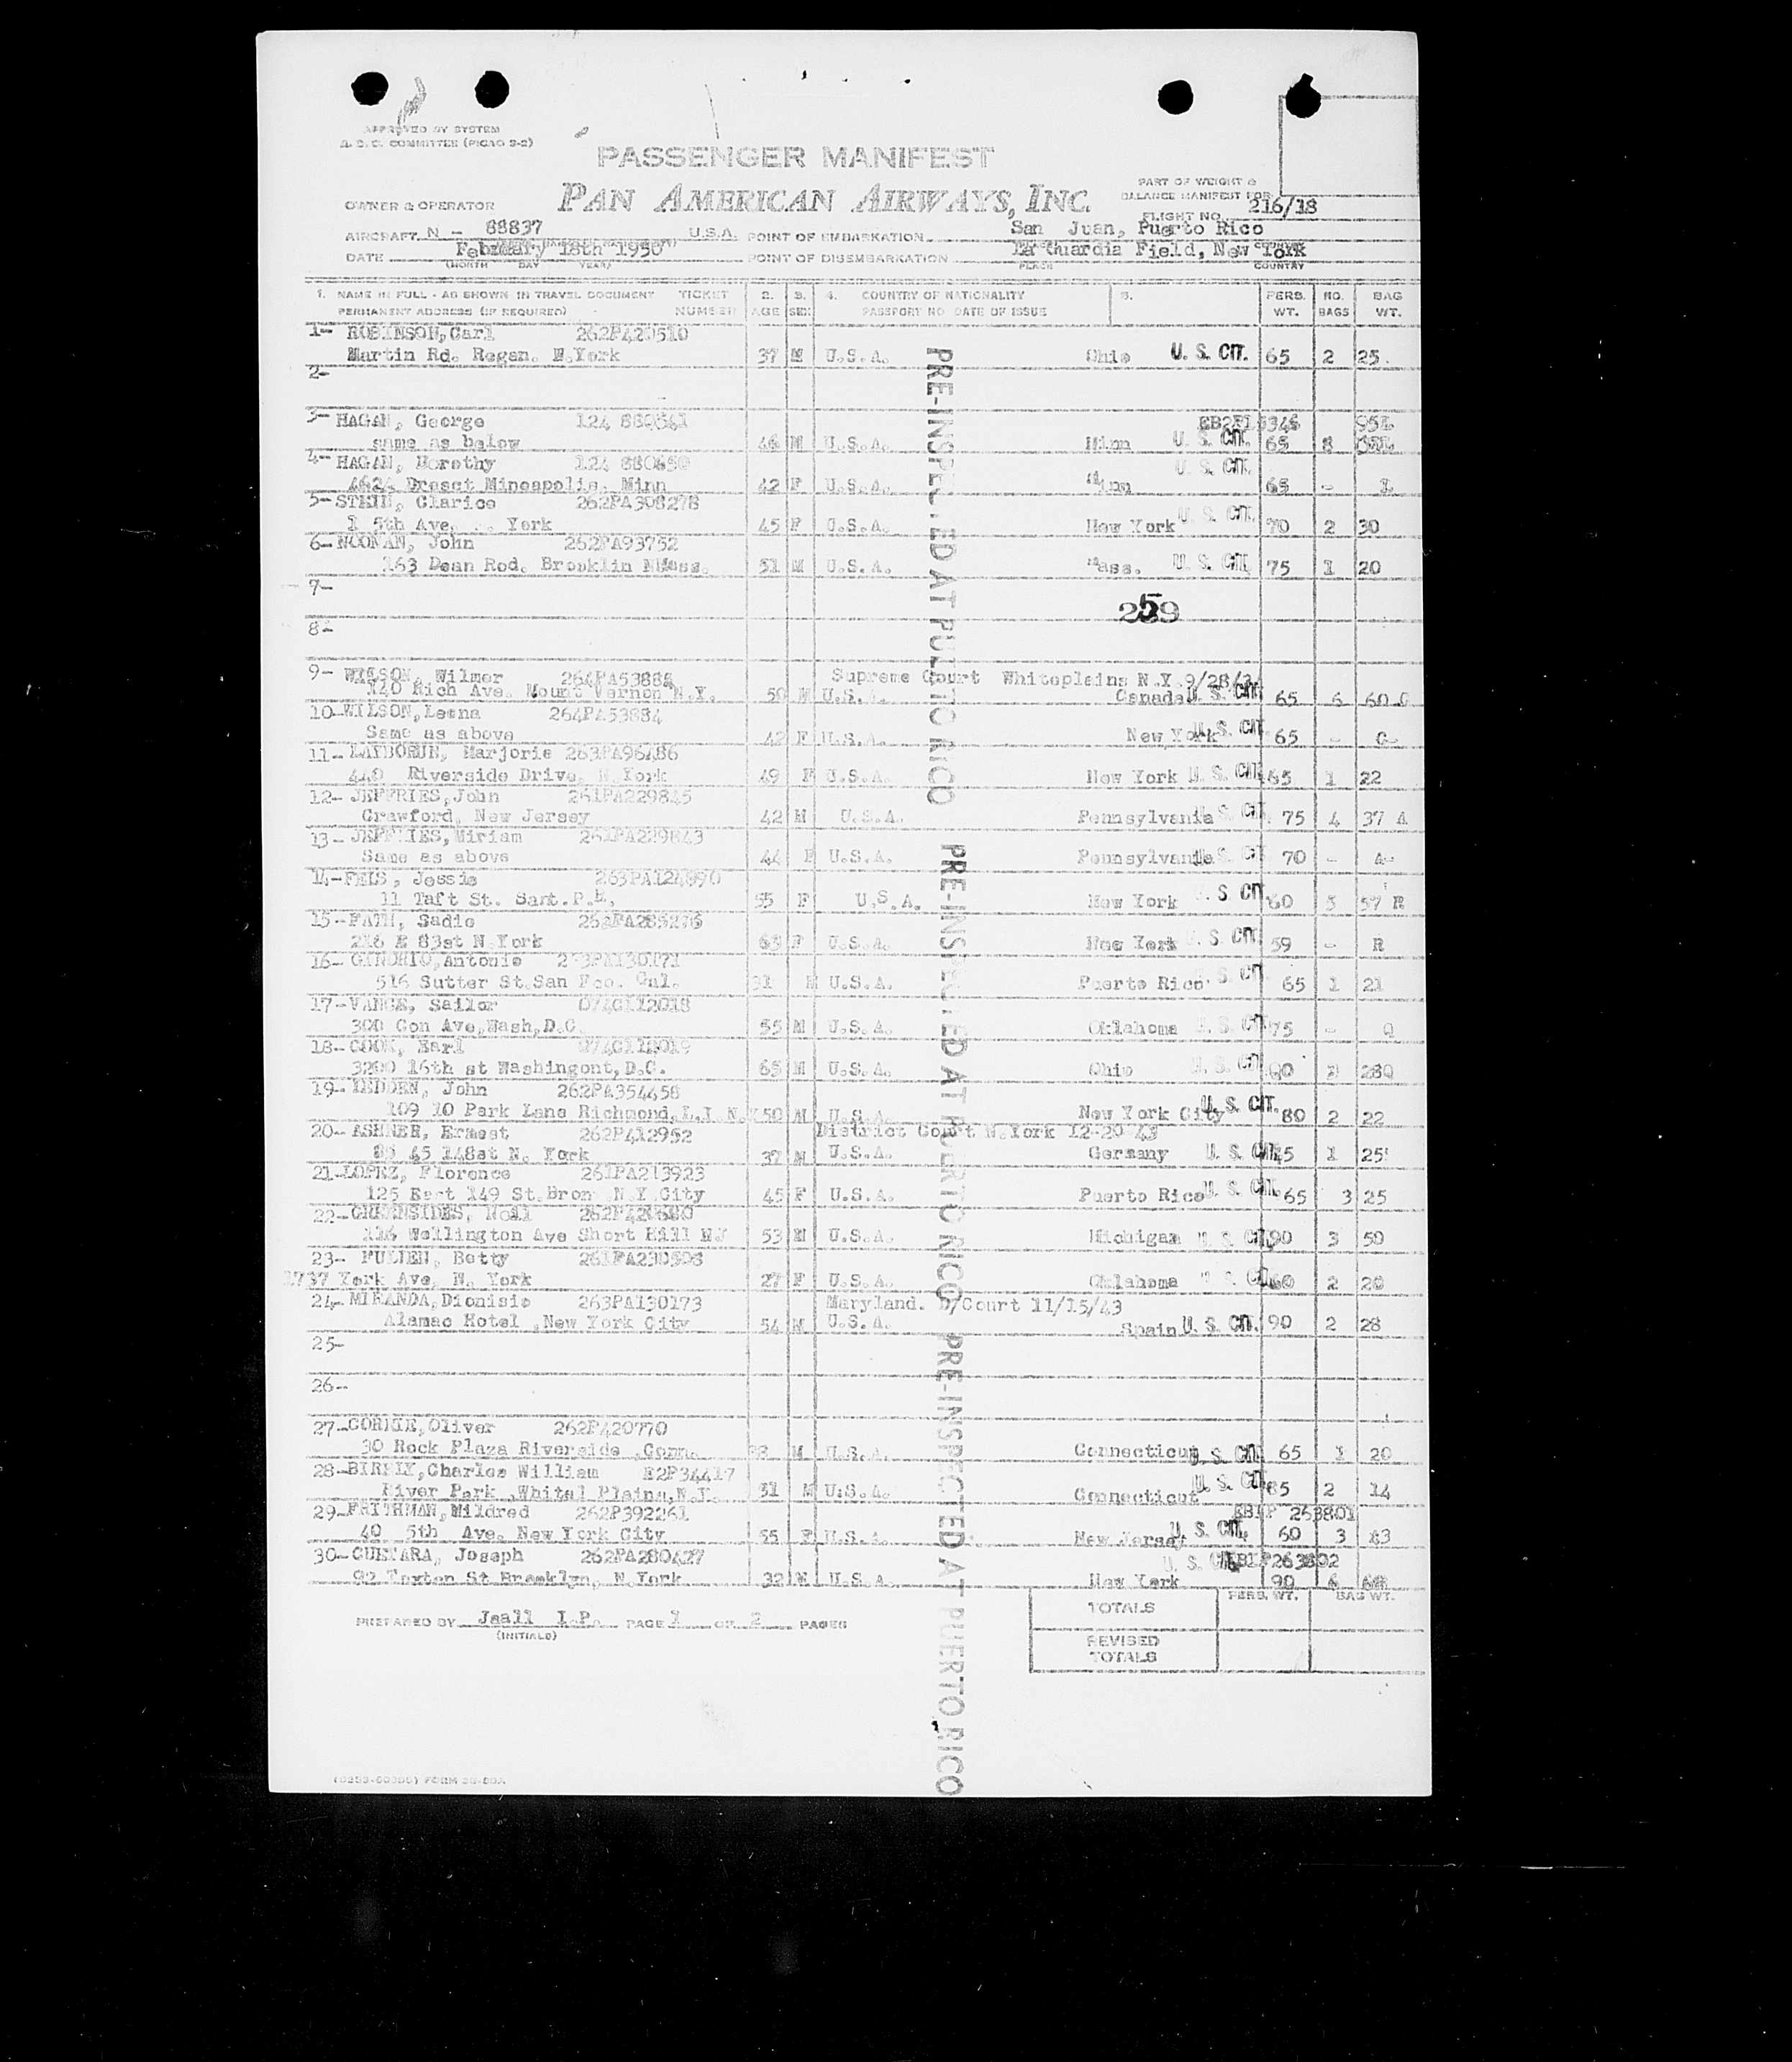 APPROVED BY SYSTEM
A. D. C. COMMITTEE (PICAO 2-2)
PASSENGER MANIFEST
PAN AMERICAN AIRWAYS, INC.
PART OF WEIGHT &
BALANCE MANIFEST FOR
OWNER & OPERATOR
FLIGHT NO. 216/18
AIRCRAFT N - 88837 U.S.A. POINT OF EMBARKATION San Juan, Puerto Rico
DATE February 18th 1950 POINT OF DISEMBARKATION La Guardia Field, New York
(MONTH DAY YEAR) PLACE COUNTRY
1. NAME IN FULL - AS SHOWN IN TRAVEL DOCUMENT TICKET 2. 3. 4. COUNTRY OF NATIONALITY 5. PERS. NO. BAG
PERMANENT ADDRESS (IF REQUIRED) NUMBER AGE SEX PASSPORT NO. DATE OF ISSUE WT. BAGS WT.
1- ROBINSON,Carl 262P420510
Martin Rd. Regan. N.York 37 M U.S.A. Ohio U. S. CIT. 65 2 25
2-
3- HAGAN, George 124
same as below 46 M U.S.A. Minn U. S. CIT. 65 8
4- HAGAN, Dorothy 124 U. S. CIT.
4624 Mineapolis. Minn 42 F U.S.A. Minn 65 -
5- STEIN, Clarice 262PA308278
1 5th Ave. York 45 F U.S.A. New York U. S. CIT. 70 2 30
6- NOONAN, John 262PA93752
163 Dean Rod. Brooklin Mass. 51 M U.S.A. Mass. U. S. CIT. 75 1 20
7-
259
8-
9- WILSON, Wilmer 264PA53884 Supreme Court Whiteplains N.Y.
140 Rich Ave. Mount Vernon N.Y. 50 M U.S.A. Canada U. S. CIT. 65 6 60
10-WILSON,Leona 264PA53884
Same as above 42 F U.S.A. New York U. S. CIT. 65 -
11- Marjorie 263PA96486
440 Riverside Drive, N.York 49 F U.S.A. New York U. S. CIT. 65 1 22
12- JEFFRIES,John 261PA229845
Crawford, New Jersey 42 M U.S.A. Pennsylvania U. S. CIT. 75 4 37 A
13- JEFFRIES,Miriam 261PA229843
Same as above 44 F U.S.A. Pennsylvania U. S. CIT 70 - A-
14-FELS, Jessie 263PA124890
11 Taft St. Sant.P.R. 55 F U.S.A. New York U. S. CIT. 60 3 57 R
15-FATH, Sadie
216 E 83st N.York 63 F U.S.A. New York U. S. CIT. 59 - R
16- Antonio
516 Sutter St.San Fco. Cal. 31 M U.S.A. Puerto Rico U. S. CIT. 65 1 21
17-VANCE, Sailor
300 Con Ave,Wash,D.C. 55 M U.S.A. Oklahoma U. S. CIT. 75 - Q
18-COOK, Earl
3200 16th st Washingont,D.C. 65 M U.S.A. Ohio U. S. CIT.
19- John 262PA354458
109 10 Park Lane Richmond,L.I.N.Y 50 M U.S.A. New York City U. S. CIT. 80 2 22
20- ASHNER, Ernest 262P412952 District Court N.York 12-20-43
85 45 148st N. York 37 M U.S.A. Germany U. S. CIT. 1 25
21-LOPEZ, Florence 261PA213923
125 East 149 St.Bron N.Y.City 45 F U.S.A. Puerto Rico U. S. CIT. 65 3 25
22-GREENSIDES, Neil
Wellington Ave Short Hill NJ 53 M U.S.A. Michigan U. S. CIT. 90 3 50
23- Betty
1737 York Ave, N. York 27 F U.S.A. Oklahoma U. S. CIT. 60 2 20
24- MIRANDA,Dionisio 263PA130173 Maryland. D/Court 11/15/43
Alamac Hotel ,New York City 54 M U.S.A. Spain U. S. CIT. 90 2 28
25-
26-
27- Oliver 262P420770
30 Rock Plaza Riverside ,Conn. M U.S.A. Connecticut U. S. CIT. 65 1 20
28- Charles William E2P34417
River Park ,Whital Plains,N.Y. 51 M U.S.A. Connecticut U. S. CIT. 85 2 14
29- Mildred 262P392261 263801
40 5th Ave. New York City 55 F U.S.A. New Jersey U. S. CIT. 60 3 43
30-GUETARA, Joseph 262PA280427 U. S. CIT.
92 St Brooklyn, N.York 32 M U.S.A. New York 90 6
PERS. WT. BAG WT.
TOTALS
PREPARED BY Jaall I.P. PAGE 1 OF 2 PAGES
(INITIALS)
REVISED
TOTALS
PRE-INSPECTED AT PUERTO RICO
PRE-INSPECTED AT PUERTO RICO
PRE-INSPECTED AT PUERTO RICO